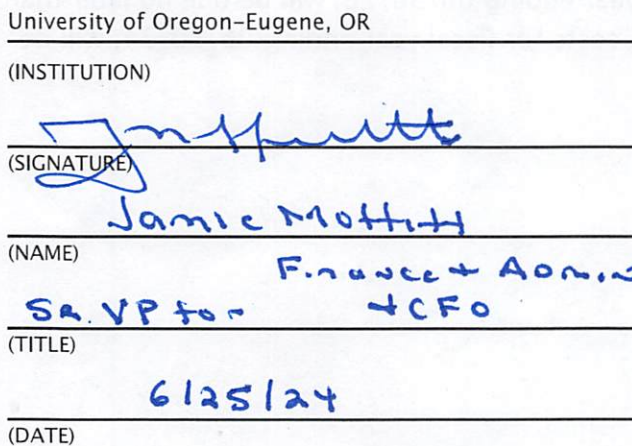 University of Oregon–Eugene, OR
(INSTITUTION)
(SIGNATURE)
Jamie Moffitt
(NAME)
Finance + Admin
Sr. VP for + CFO
(TITLE)
6/25/24
(DATE)